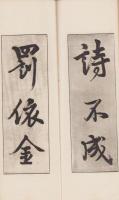 詩不成
罰依金